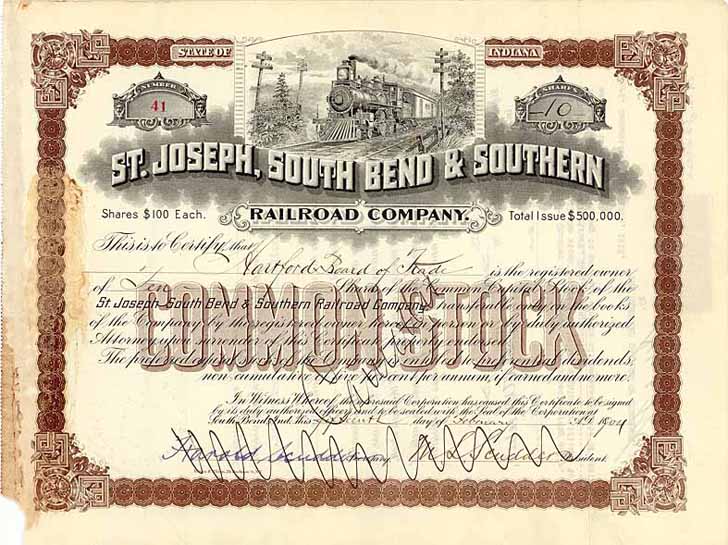 STATE OF INDIANA
NUMBER
41
SHARES
10
ST. JOSEPH, SOUTH BEND & SOUTHERN
Shares $100 Each.
RAILROAD COMPANY.
Total Issue $500,000.
This is to Certify that
Hartford Board of Trade is the registered owner
of Ten Shares of the Common Capital Stock of the
St. Joseph, South Bend & Southern Railroad Company, transferable only on the books
of the Company by the registered owner hereof in person or by duly authorized
Attorney upon surrender of this Certificate properly endorsed.
The preferred stock of the Company is entitled to preferential dividends,
non cumulative of five per cent per annum, if earned and no more.
COMMON STOCK
In Witness Whereof the aforesaid Corporation has caused this Certificate to be signed
by its duly authorized officers and to be sealed with the Seal of the Corporation at
South Bend, Ind. this day of February A.D. 1904
Harold Scudder Secretary
M L Scudder President.